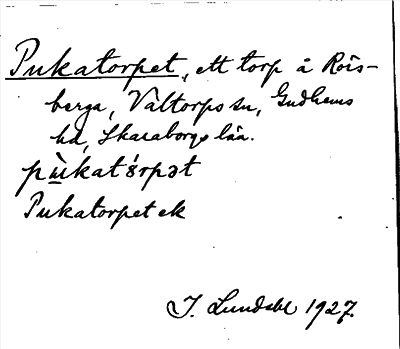 Pukatorpet, ett torp å Rös-
berga, Valtorps sn, Gudhems
hd, Skaraborgs län.
pùkatórpət
Pukatorpet ek
J. Lundahl 1927.